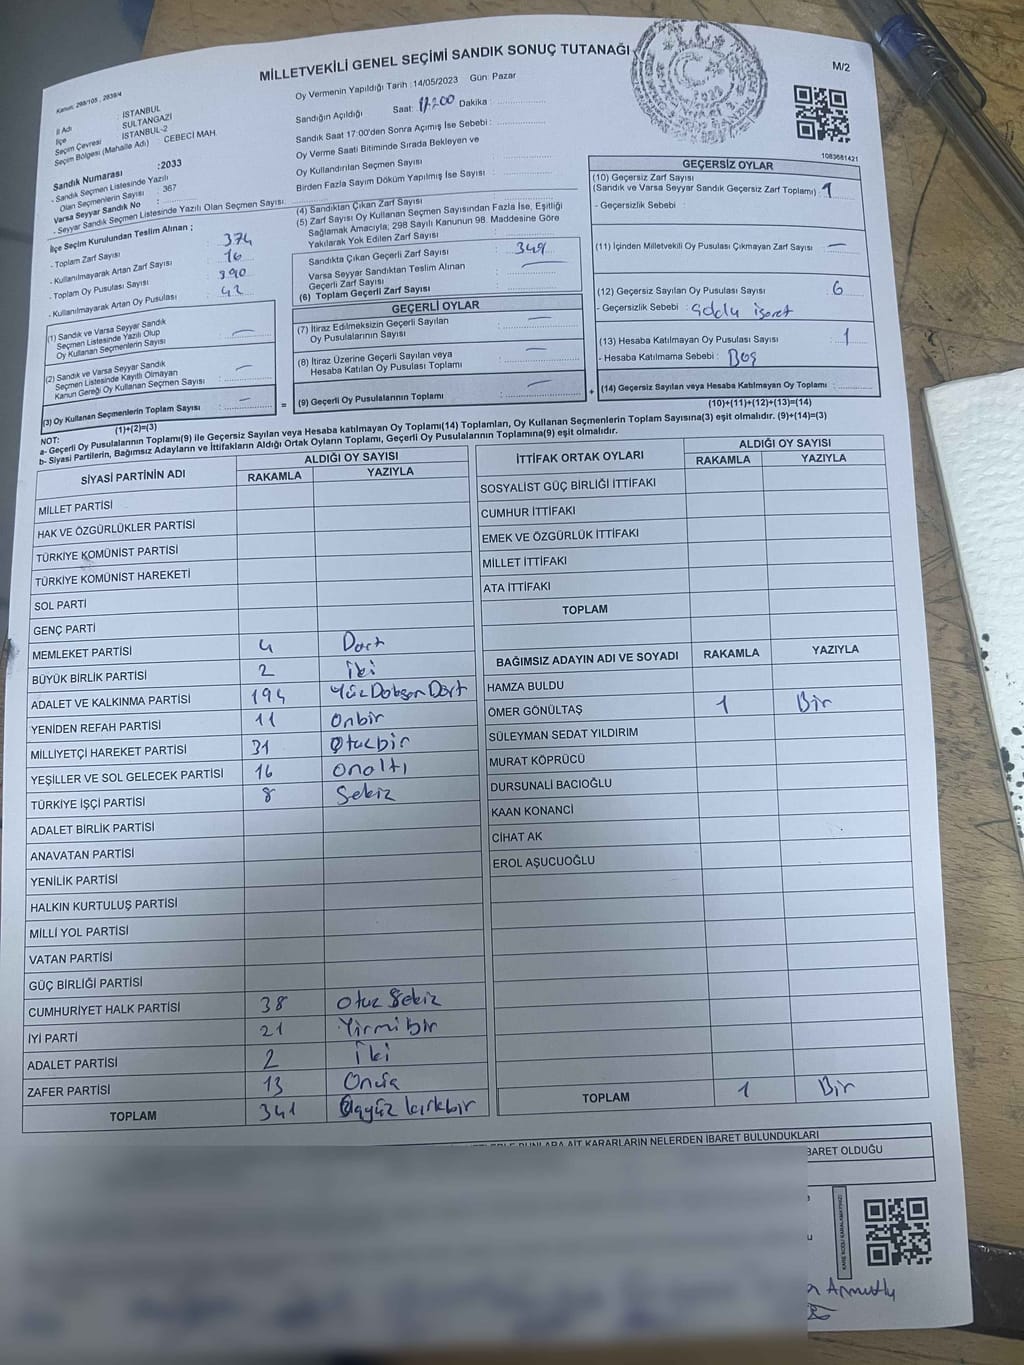 MİLLETVEKİLİ GENEL SEÇİMİ SANDIK SONUÇ TUTANAĞI
M/2
Kanun: 298/105 , 2839/4
Oy Vermenin Yapıldığı Tarih : 14/05/2023 Gün: Pazar
İl Adı : İSTANBUL
İlçe : SULTANGAZİ
Seçim Çevresi : İSTANBUL-2
Seçim Bölgesi (Mahalle Adı) : CEBECİ MAH
Sandığın Açıldığı Saat: 17:00 Dakika :
Sandık Saat 17:00'den Sonra Açımış İse Sebebi :
Oy Verme Saati Bitiminde Sırada Bekleyen ve
Oy Kullandırılan Seçmen Sayısı
Birden Fazla Sayım Döküm Yapılmış İse Sayısı :
1083681421
Sandık Numarası :2033
- Sandık Seçmen Listesinde Yazılı
Olan Seçmenlerin Sayısı : 367
Varsa Seyyar Sandık No :
- Seyyar Sandık Seçmen Listesinde Yazılı Olan Seçmen Sayısı:
İlçe Seçim Kurulundan Teslim Alınan ;
- Toplam Zarf Sayısı : 374
- Kullanılmayarak Artan Zarf Sayısı : 16
- Toplam Oy Pusulası Sayısı : 390
- Kullanılmayarak Artan Oy Pusulası : 42
(1) Sandık ve Varsa Seyyar Sandık
Seçmen Listesinde Yazılı Olup
Oy Kullanan Seçmenlerin Sayısı : —
(2) Sandık ve Varsa Seyyar Sandık
Seçmen Listesinde Kayıtlı Olmayan
Kanun Gereği Oy Kullanan Seçmen Sayısı : —
(3) Oy Kullanan Seçmenlerin Toplam Sayısı : — =
(1)+(2)=(3)
(4) Sandıktan Çıkan Zarf Sayısı
(5) Zarf Sayısı Oy Kullanan Seçmen Sayısından Fazla İse, Eşitliği
Sağlamak Amacıyla; 298 Sayılı Kanunun 98. Maddesine Göre
Yakılarak Yok Edilen Zarf Sayısı :
Sandıkta Çıkan Geçerli Zarf Sayısı : 349
Varsa Seyyar Sandıktan Teslim Alınan
Geçerli Zarf Sayısı : —
(6) Toplam Geçerli Zarf Sayısı :
GEÇERLİ OYLAR
(7) İtiraz Edilmeksizin Geçerli Sayılan
Oy Pusulalarının Sayısı : —
(8) İtiraz Üzerine Geçerli Sayılan veya
Hesaba Katılan Oy Pusulası Toplamı : —
(9) Geçerli Oy Pusulalarının Toplamı : — +
GEÇERSİZ OYLAR
(10) Geçersiz Zarf Sayısı
(Sandık ve Varsa Seyyar Sandık Geçersiz Zarf Toplamı) : 1
- Geçersizlik Sebebi :
(11) İçinden Milletvekili Oy Pusulası Çıkmayan Zarf Sayısı : —
(12) Geçersiz Sayılan Oy Pusulası Sayısı : 6
- Geçersizlik Sebebi : işaret
(13) Hesaba Katılmayan Oy Pusulası Sayısı : 1
- Hesaba Katılmama Sebebi : Boş
(14) Geçersiz Sayılan veya Hesaba Katılmayan Oy Toplamı :
(10)+(11)+(12)+(13)=(14)
NOT:
a- Geçerli Oy Pusulalarının Toplamı(9) ile Geçersiz Sayılan veya Hesaba katılmayan Oy Toplamı(14) Toplamları, Oy Kullanan Seçmenlerin Toplam Sayısına(3) eşit olmalıdır. (9)+(14)=(3)
b- Siyasi Partilerin, Bağımsız Adayların ve İttifakların Aldığı Ortak Oyların Toplamı, Geçerli Oy Pusulalarının Toplamına(9) eşit olmalıdır.
SİYASİ PARTİNİN ADI
ALDIĞI OY SAYISI
RAKAMLA YAZIYLA
MİLLET PARTİSİ
HAK VE ÖZGÜRLÜKLER PARTİSİ
TÜRKİYE KOMÜNİST PARTİSİ
TÜRKİYE KOMÜNİST HAREKETİ
SOL PARTİ
GENÇ PARTİ
MEMLEKET PARTİSİ 4 Dört
BÜYÜK BİRLİK PARTİSİ 2 iki
ADALET VE KALKINMA PARTİSİ 194 Yüz Doksan Dört
YENİDEN REFAH PARTİSİ 11 Onbir
MİLLİYETÇİ HAREKET PARTİSİ 31 Otuzbir
YEŞİLLER VE SOL GELECEK PARTİSİ 16 onaltı
TÜRKİYE İŞÇİ PARTİSİ 8 Sekiz
ADALET BİRLİK PARTİSİ
ANAVATAN PARTİSİ
YENİLİK PARTİSİ
HALKIN KURTULUŞ PARTİSİ
MİLLİ YOL PARTİSİ
VATAN PARTİSİ
GÜÇ BİRLİĞİ PARTİSİ
CUMHURİYET HALK PARTİSİ 38 Otuz Sekiz
İYİ PARTİ 21 Yirmibir
ADALET PARTİSİ 2 İki
ZAFER PARTİSİ 13 Onüç
TOPLAM 341 Üçyüz kırkbir
İTTİFAK ORTAK OYLARI
ALDIĞI OY SAYISI
RAKAMLA YAZIYLA
SOSYALİST GÜÇ BİRLİĞİ İTTİFAKI
CUMHUR İTTİFAKI
EMEK VE ÖZGÜRLÜK İTTİFAKI
MİLLET İTTİFAKI
ATA İTTİFAKI
TOPLAM
BAĞIMSIZ ADAYIN ADI VE SOYADI RAKAMLA YAZIYLA
HAMZA BULDU
ÖMER GÖNÜLTAŞ 1 Bir
SÜLEYMAN SEDAT YILDIRIM
MURAT KÖPRÜCÜ
DURSUNALİ BACIOĞLU
KAAN KONANCİ
CİHAT AK
EROL AŞUCUOĞLU
TOPLAM 1 Bir
AİT KARARLARIN NELERDEN İBARET BULUNDUKLARI
BARET OLDUĞU